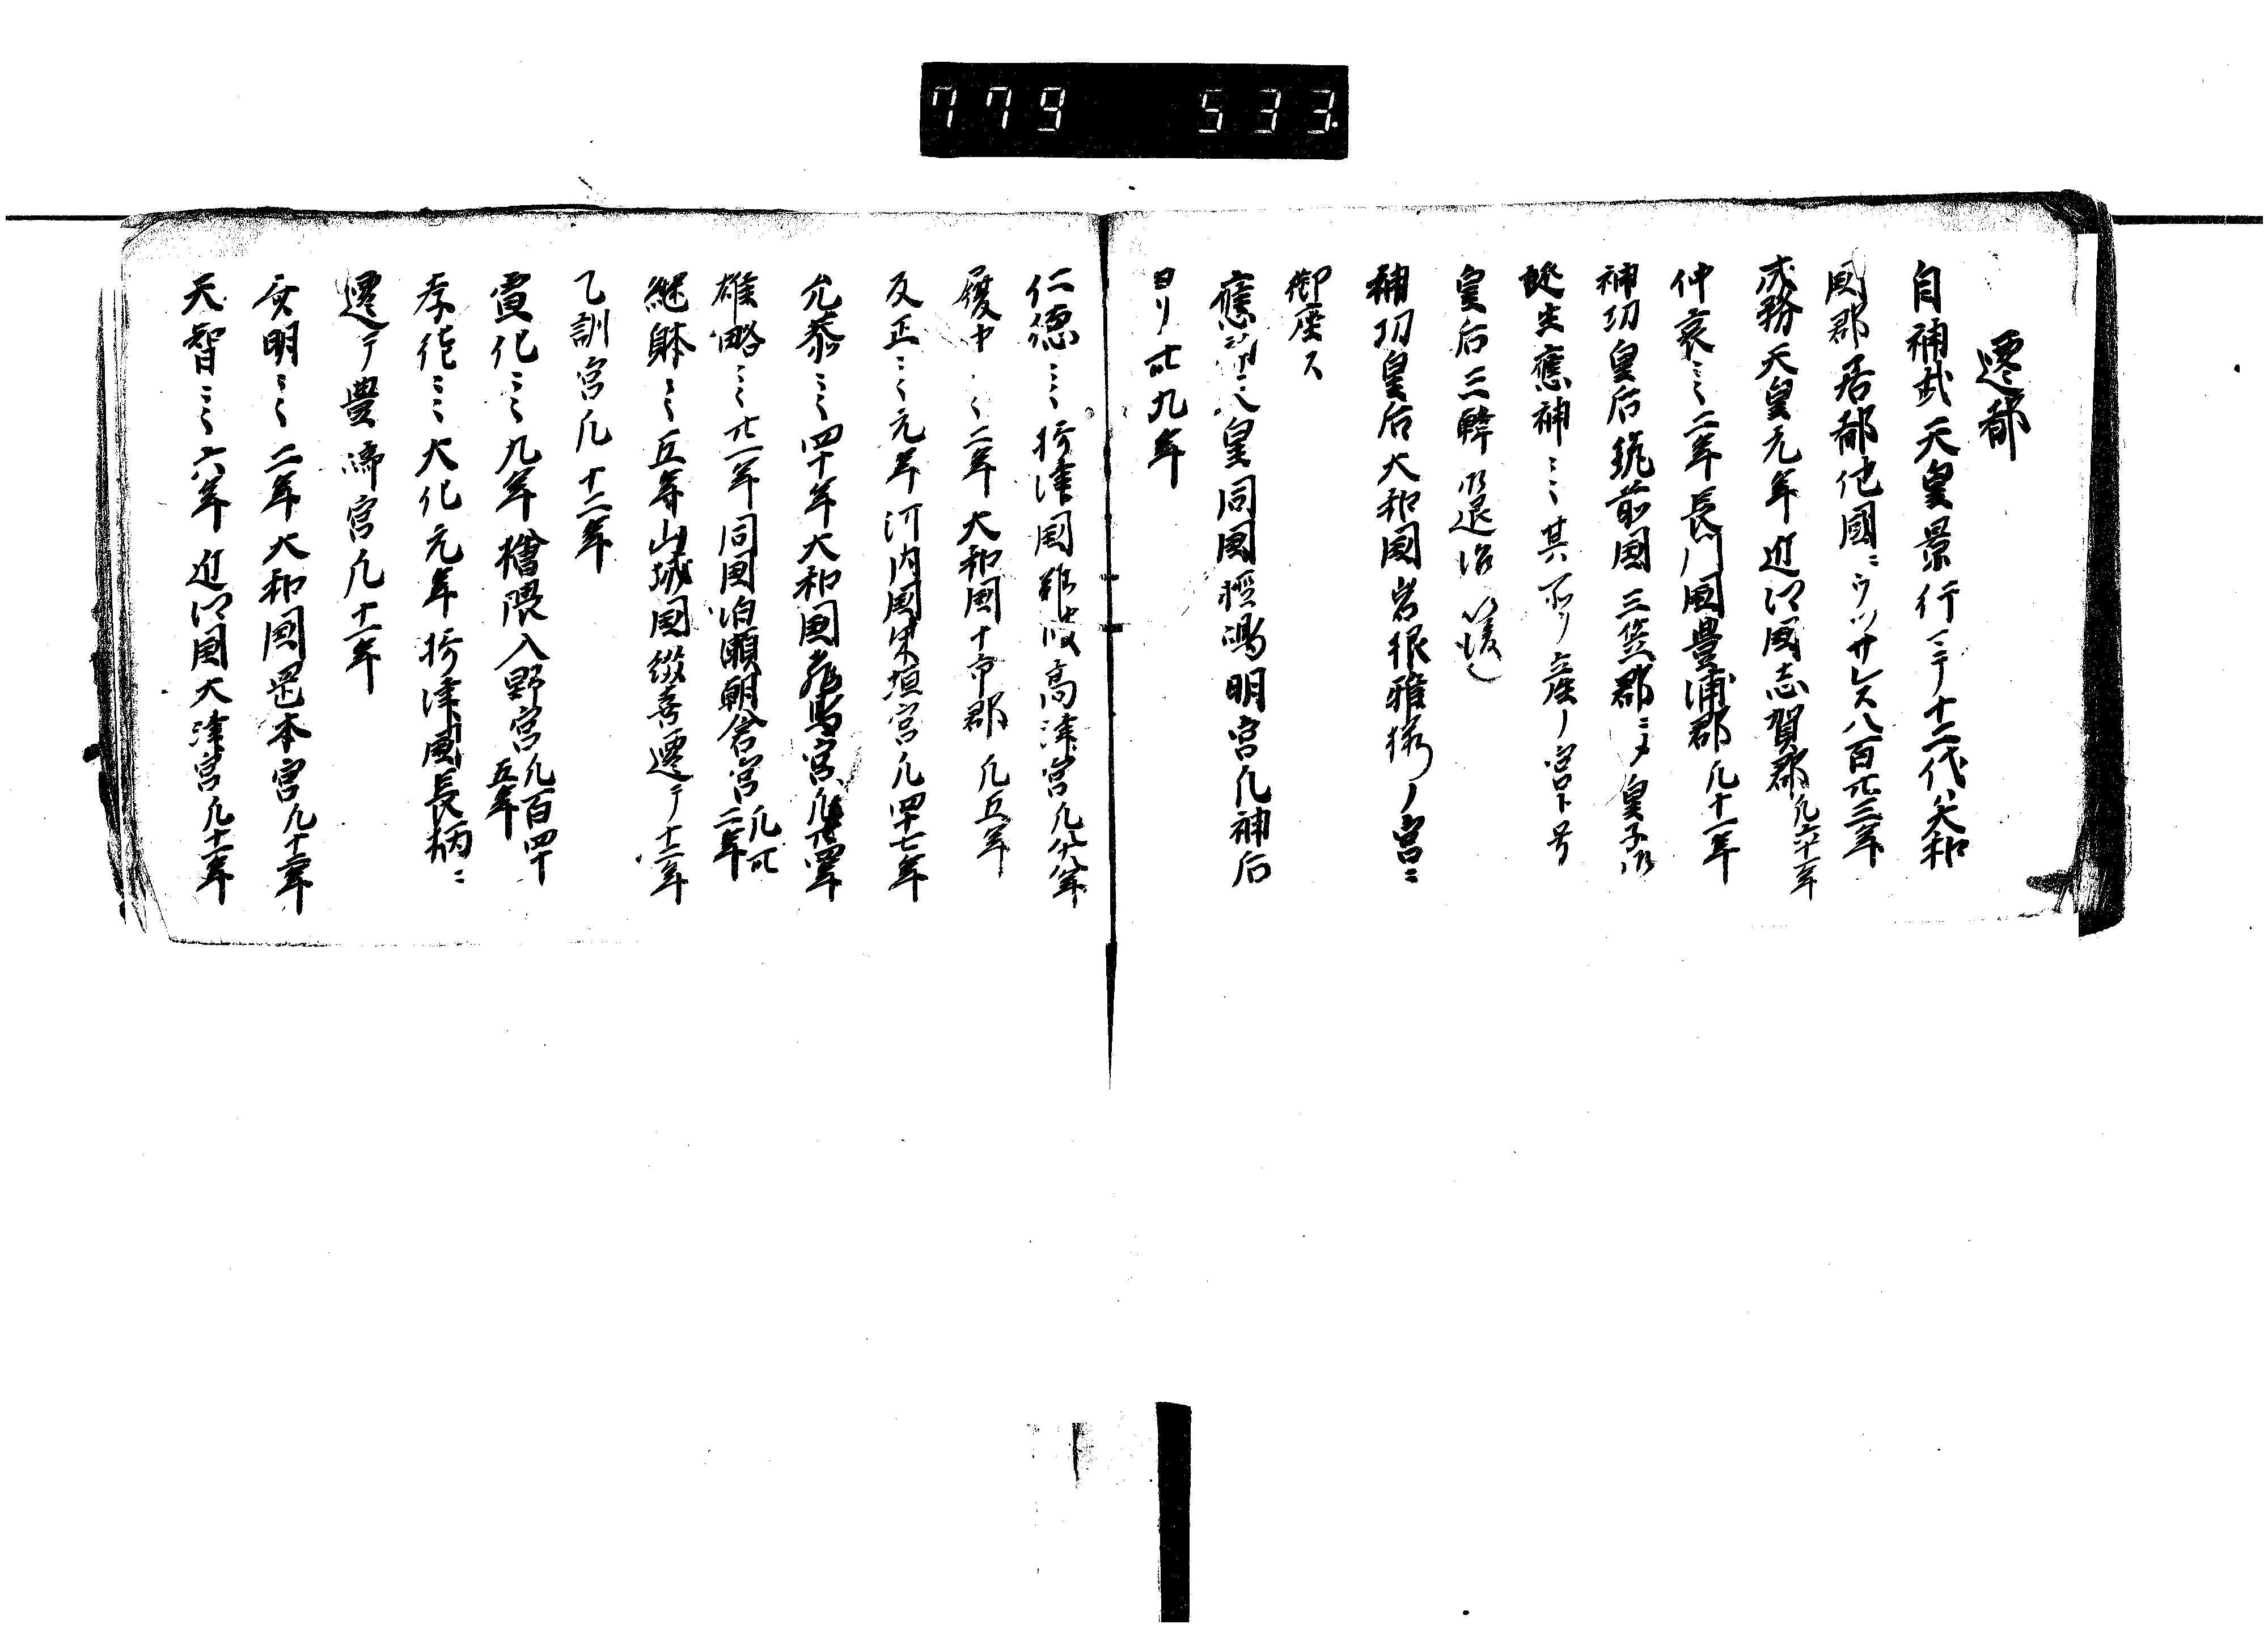 779 533
遷都
自神武天皇景行ミテ十二代大和
国郡居都他國ニウツサレス八百卅三年
成務天皇元年近江国志賀郡凡六十一年
仲哀ミ〻二年長門国豊浦郡凡十一年
神功皇后筑前国三笠郡ニメ皇子御
誕生應神ミ〻其所ノ産ノ宮ト号
皇后三韓御退治以後
神功皇后大和国岩根雅桜ノ宮ニ
御座ス
應神天皇同国軽嶋明宮凡神后
ヨリ卌九年
仁徳ミ〻摂津国難波高津宮凡八十八年
履中〻二年大和国十市郡凡五年
反正ミ〻元年河内国柴垣宮凡四十七年
允恭ミ〻四十年大和国飛鳥宮凡廿四年
雄略ミ〻廿一年同国泊瀬朝倉宮凡卌二年
継躰ミ〻五年山城国綴喜遷テ十二年
乙訓宮凡十二年
宣化ミ〻九年檜隈入野宮凡百四十五年
孝徳ミ〻大化元年摂津国長柄ニ
遷テ豊崎宮凡十一年
斉明ミ〻二年大和国罡本宮凡十二年
天智ミ〻六年近江国大津宮凡十一年